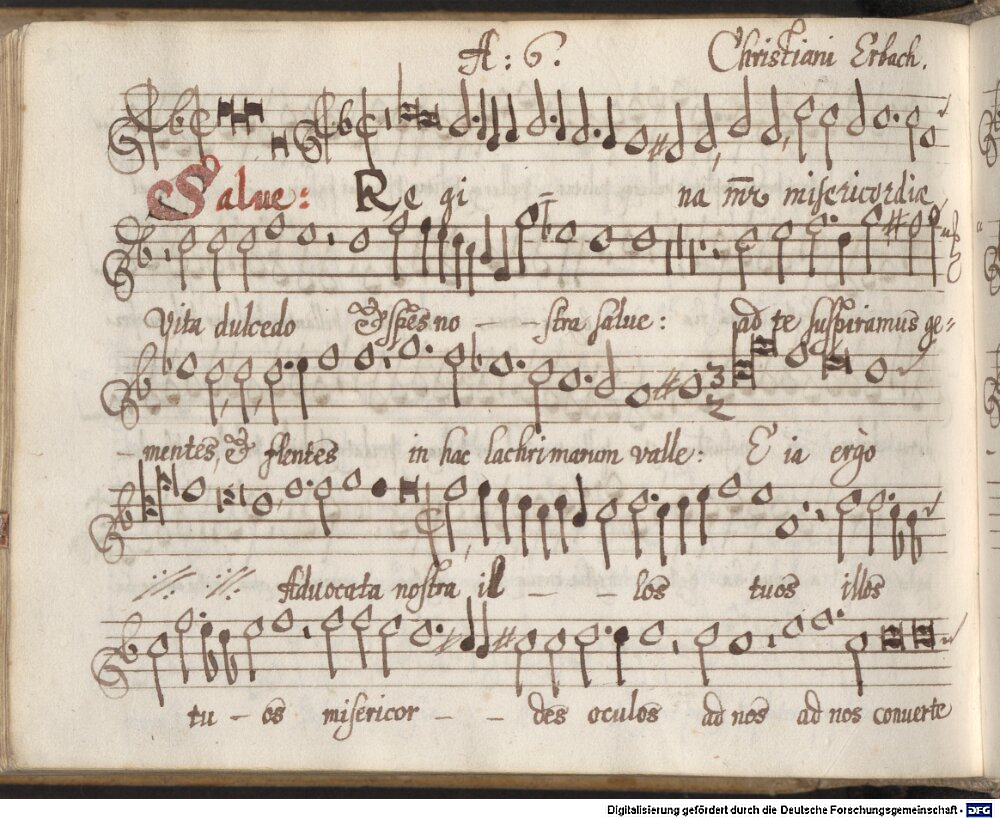 A: 6. Christiani Erbach.
Salve: Re gi na m̄r misericordie
Vita dulcedo & spēs no - - stra salve: ad te suspiramus ge=
mentes, & flentes in hac lachrimarum valle: E ia ergò
Advocata nostra il - - los tuos illos
tu - os misericor - - des oculos ad nos ad nos converte
Digitalisierung gefördert durch die Deutsche Forschungsgemeinschaft - DFG